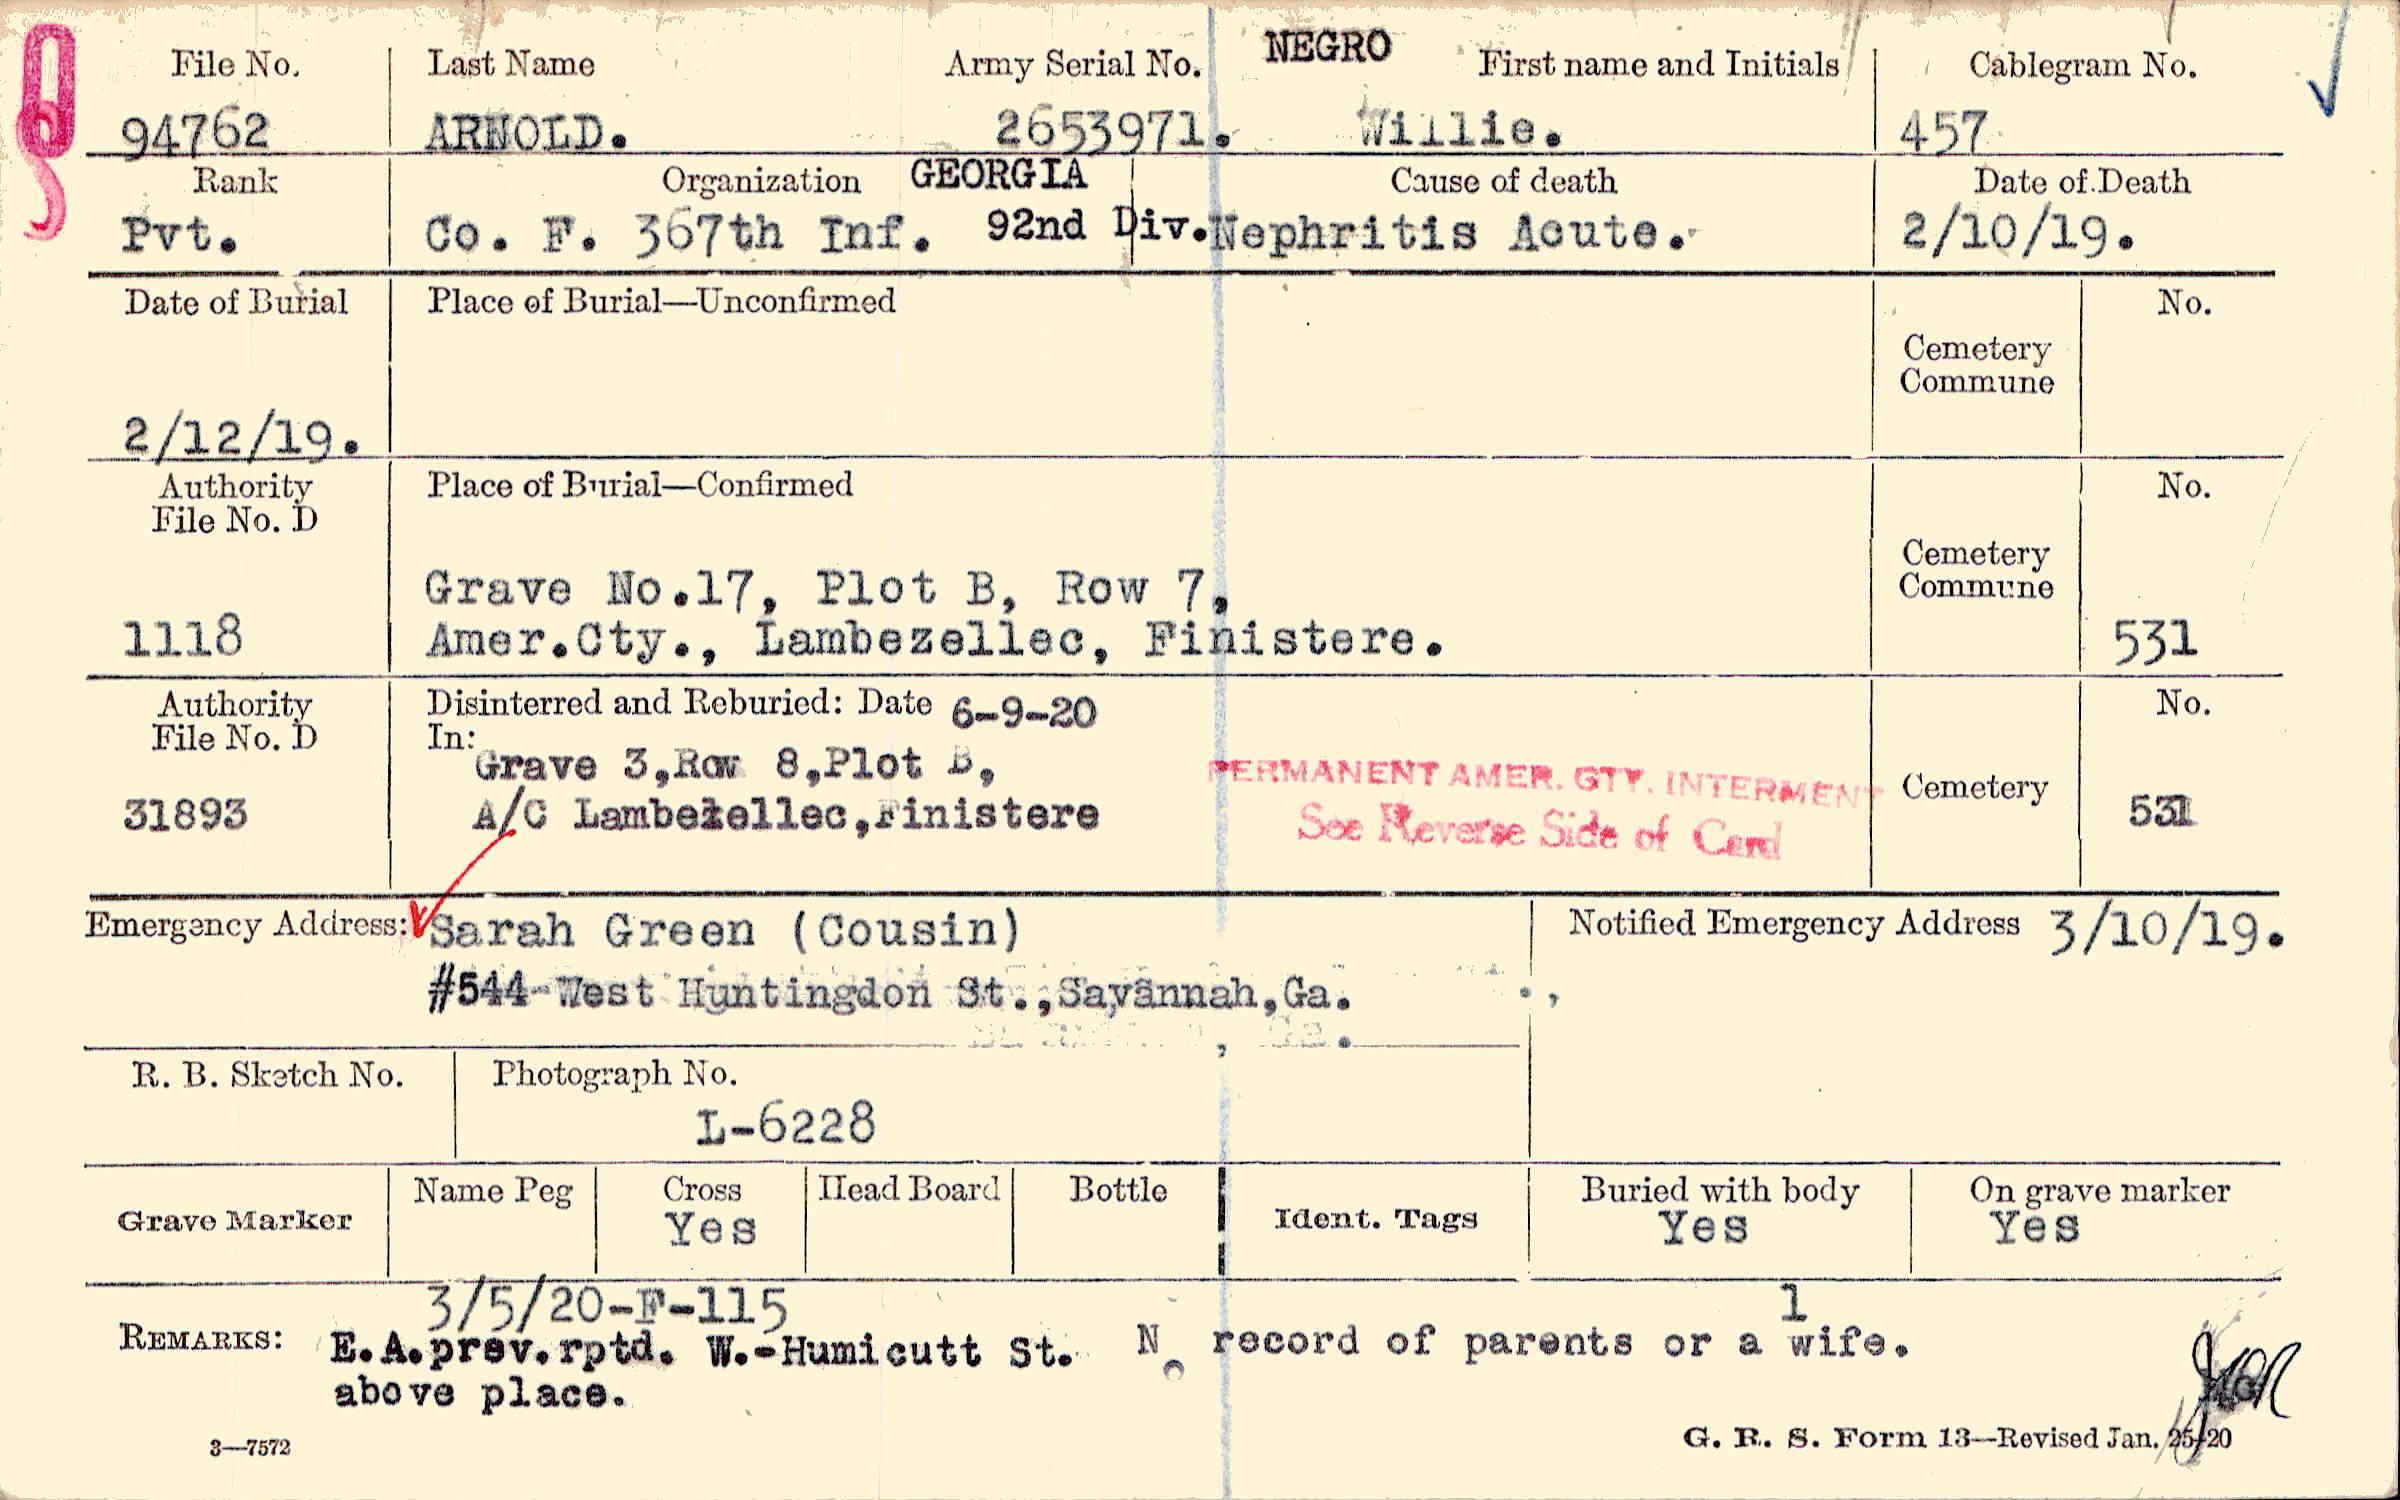 File No. Last Name Army Serial No. NEGRO First name and Initials Cablegram No.
94762 ARNOLD. 2653971. Willie. 457
Rank Organization GEORGIA Cause of death Date of Death
Pvt. Co. F. 367th Inf. 92nd Div. Nephritis Acute. 2/10/19.
Date of Burial Place of Burial—Unconfirmed No.
Cemetery
Commune
2/12/19.
Authority Place of Burial—Confirmed No.
File No. D
Cemetery
Commune
Grave No.17, Plot B, Row 7,
1118 Amer.Cty., Lambezellec, Finistere. 531
Authority Disinterred and Reburied: Date 6-9-20 No.
File No. D In:
Grave 3,Row 8,Plot B,
PERMANENT AMER. CTY. INTERMENT Cemetery
31893 A/C Lambezellec,Finistere 531
See Reverse Side of Card
Emergency Address: Sarah Green (Cousin) Notified Emergency Address 3/10/19.
#544-West Huntingdon St.,Savannah,Ga.
R. B. Sketch No. Photograph No.
L-6228
Name Peg Cross Head Board Bottle Buried with body On grave marker
Grave Marker Yes Ident. Tags Yes Yes
3/5/20-F-115 1
REMARKS: E.A.prev.rptd. W.-Humicutt St. No record of parents or a wife.
above place.
3—7572 G. R. S. Form 13—Revised Jan. 25-20